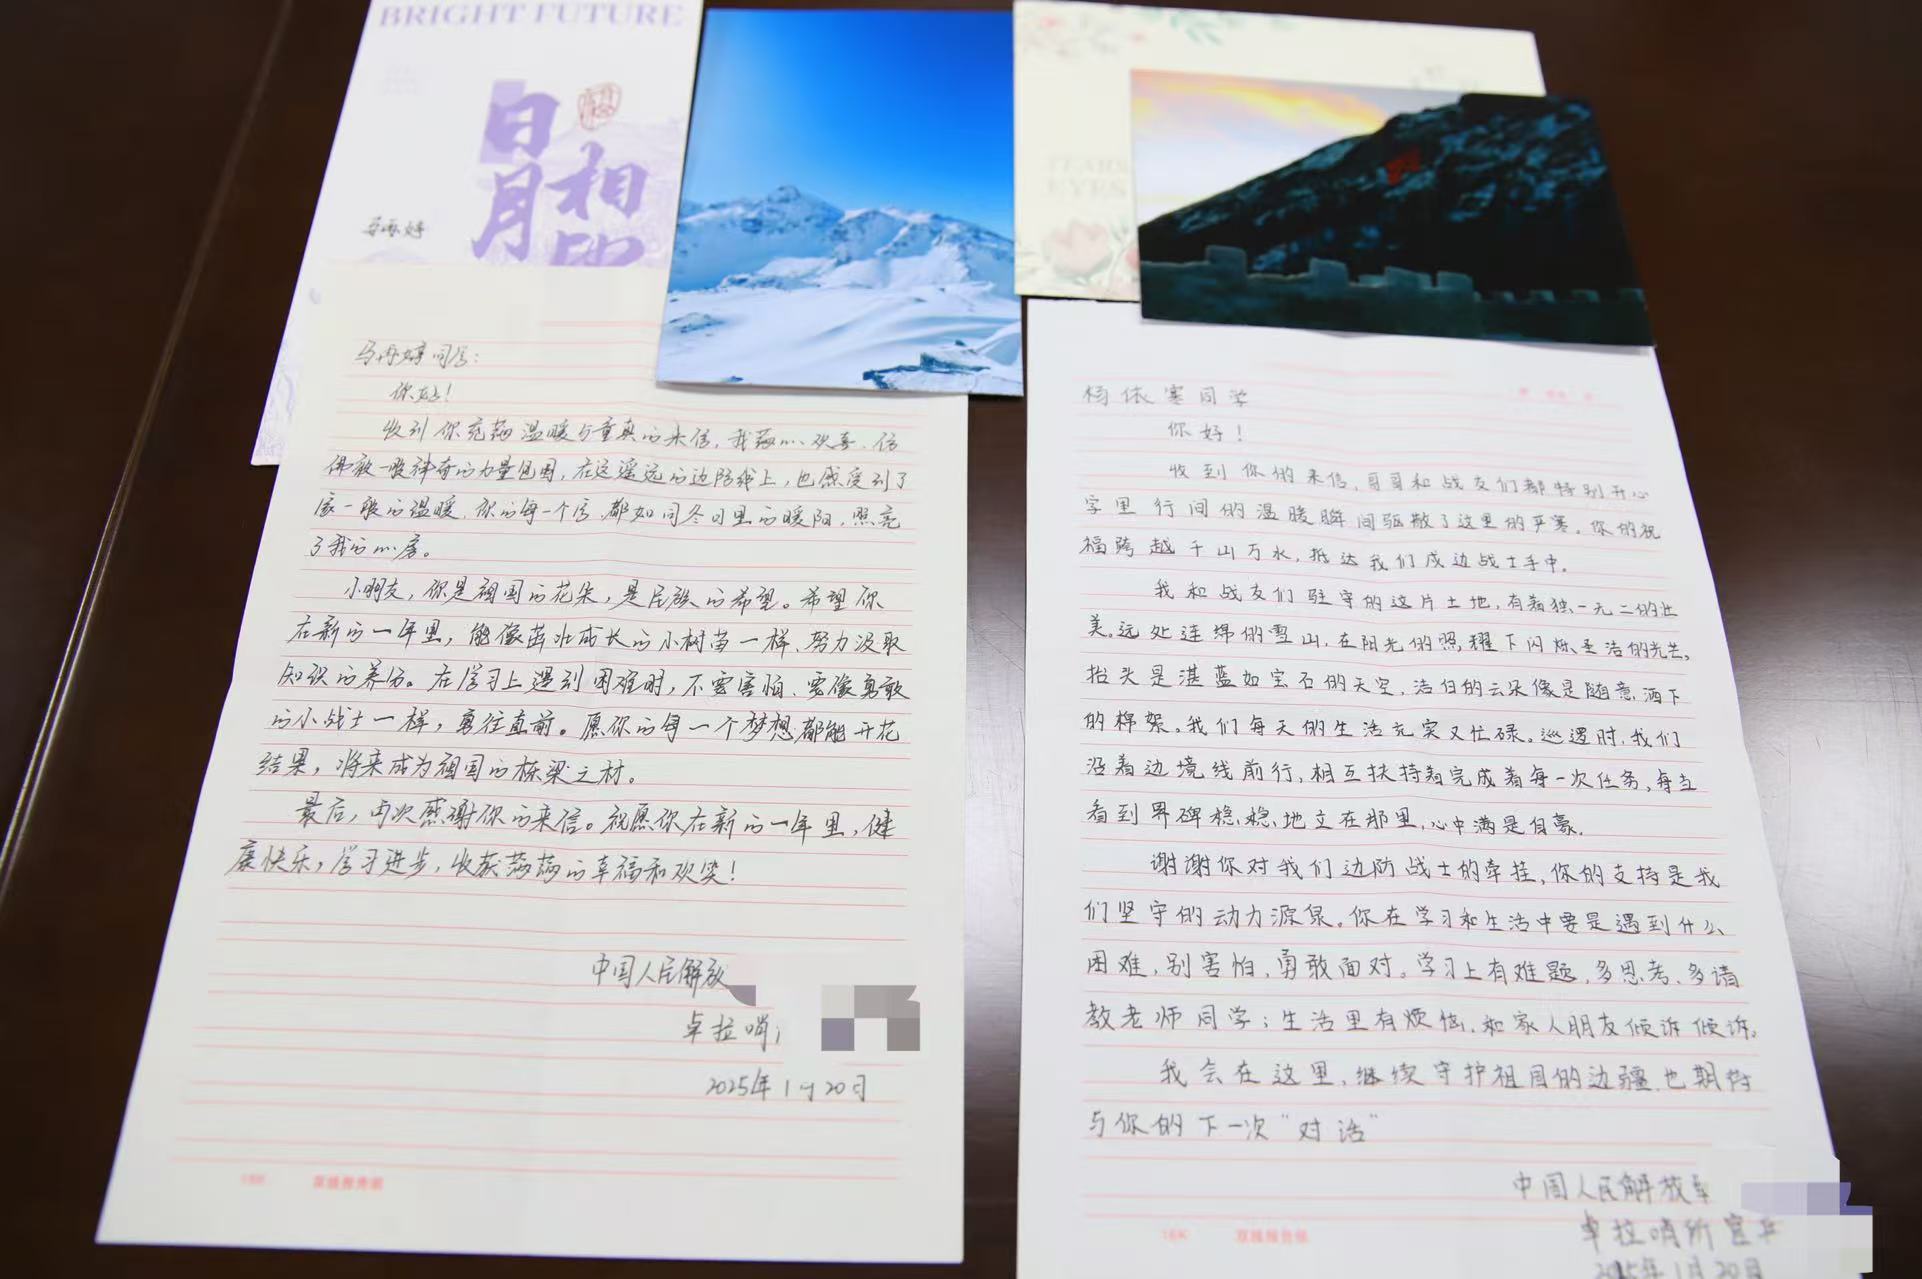 BRIGHT FUTURE
日月
相印
TEARS
EYES
马冉婷同学：
你好！
收到你充满温暖与童真的来信，我满心欢喜，仿
佛被一股神奇的力量包围，在这遥远的边防线上，也感受到了
家一般的温暖，你的每一个字，都如同冬日里的暖阳，照亮
了我的心房。
小朋友，你是祖国的花朵，是民族的希望。希望你
在新的一年里，能像茁壮成长的小树苗一样，努力汲取
知识的养分。在学习上遇到困难时，不要害怕、要像勇敢
的小战士一样，勇往直前。愿你的每一个梦想都能开花
结果，将来成为祖国的栋梁之材。
最后，再次感谢你的来信。祝愿你在新的一年里，健
康快乐，学习进步，收获满满的幸福和欢笑！
中国人民解放
卓拉哨
2025年1月20日
16K
双线报告纸
杨依寒同学
你好！
收到你的来信，哥哥和战友们都特别开心
字里行间的温暖瞬间驱散了这里的严寒。你的祝
福跨越千山万水，抵达我们戍边战士手中。
我和战友们驻守的这片土地，有着独一无二的壮
美。远处连绵的雪山，在阳光的照耀下闪烁圣洁的光芒，
抬头是湛蓝如宝石的天空，洁白的云朵像是随意洒下
的棉絮。我们每天的生活充实又忙碌。巡逻时，我们
沿着边境线前行，相互扶持着完成着每一次任务，每当
看到界碑稳稳地立在那里，心中满是自豪。
谢谢你对我们边防战士的牵挂，你的支持是我
们坚守的动力源泉。你在学习和生活中要是遇到什么
困难，别害怕，勇敢面对。学习上有难题，多思考、多请
教老师同学；生活里有烦恼，和家人朋友倾诉倾诉。
我会在这里，继续守护祖国的边疆，也期待
与你的下一次“对话”
中国人民解放军
卓拉哨所官兵
2025年1月20日
16K
双线报告纸